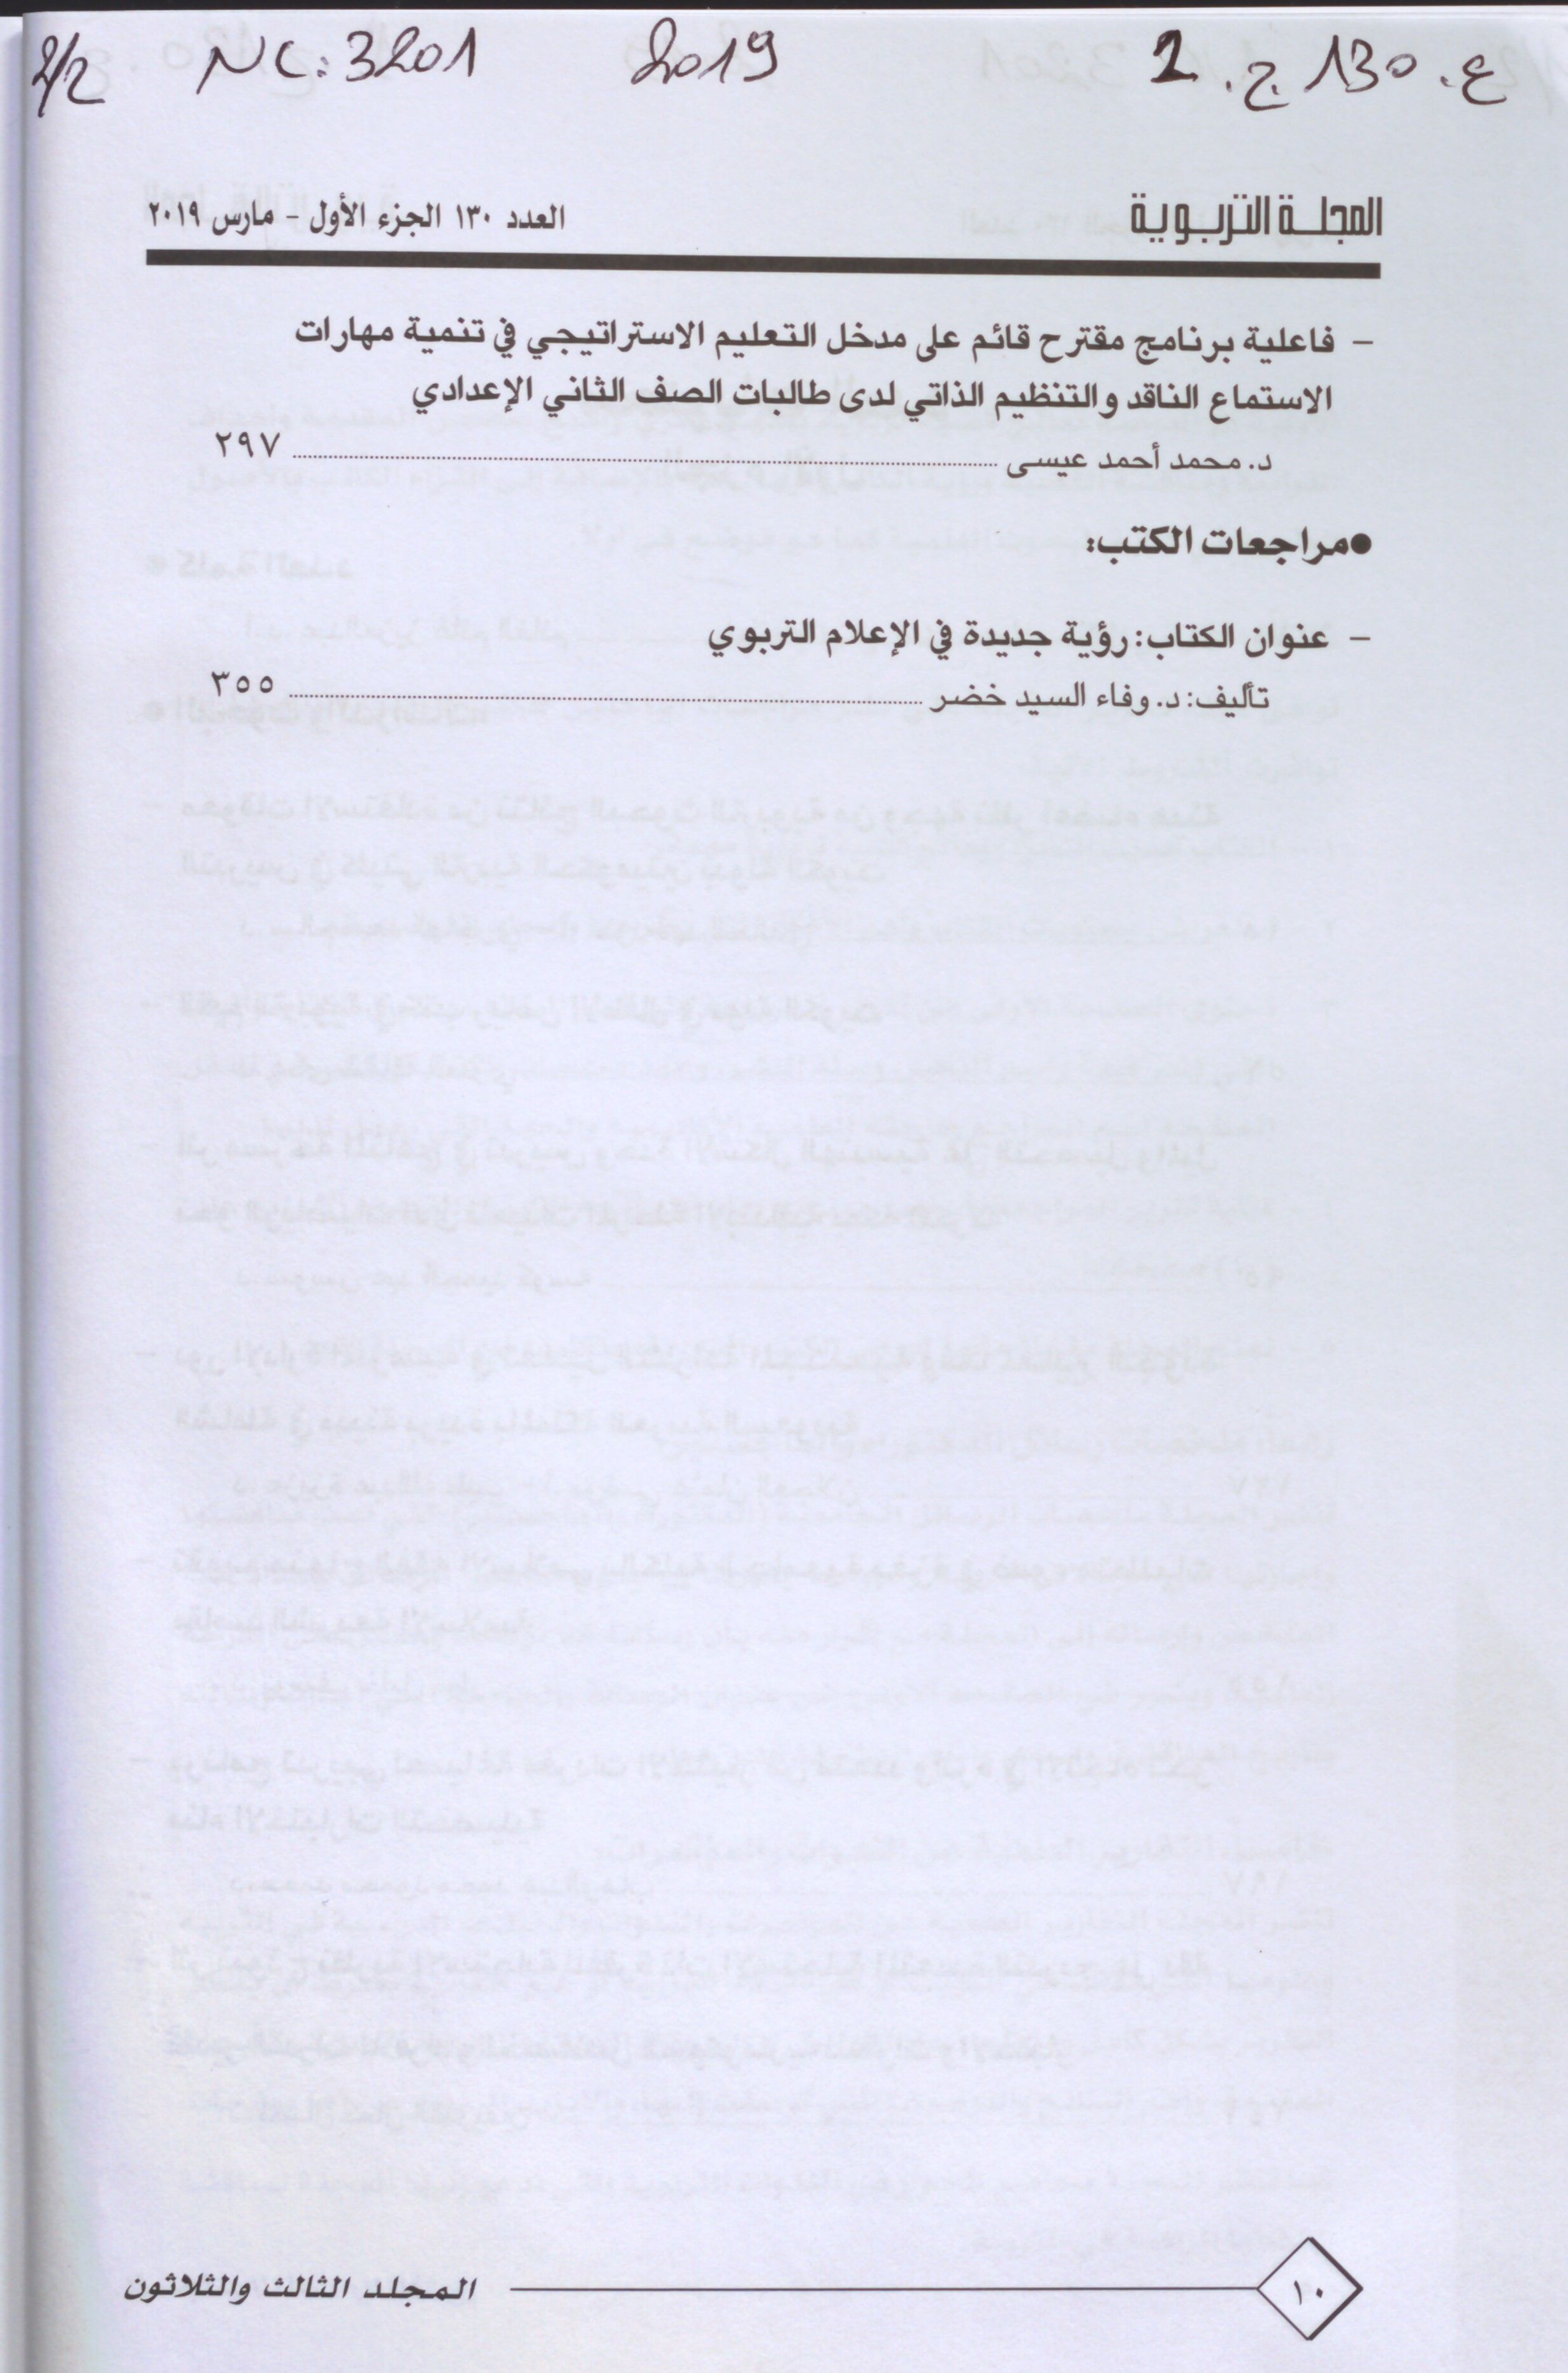 2/2 NC: 3201 2019 ع. 130 ج. 1
المجلة التربوية العدد ١٣٠ الجزء الأول - مارس ٢٠١٩
- فاعلية برنامج مقترح قائم على مدخل التعليم الاستراتيجي في تنمية مهارات
الاستماع الناقد والتنظيم الذاتي لدى طالبات الصف الثاني الإعدادي
د. محمد أحمد عيسى ٢٩٧
●مراجعات الكتب:
- عنوان الكتاب: رؤية جديدة في الإعلام التربوي
تأليف: د. وفاء السيد خضر ٣٥٥
١٠ المجلد الثالث والثلاثون